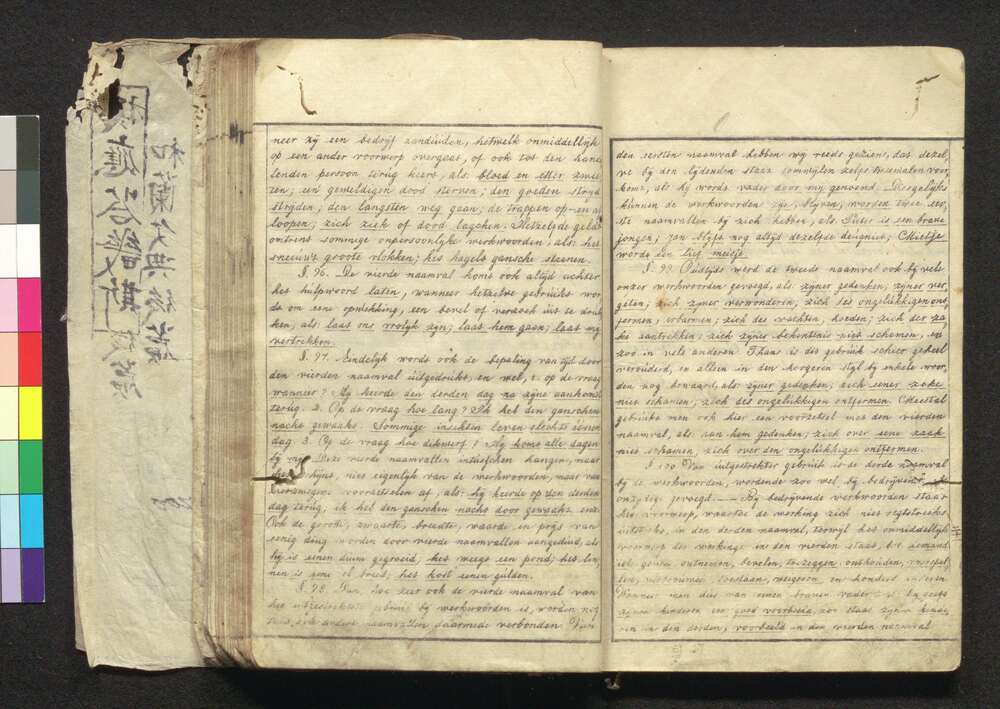 neer zy een bedryf aanduiden, hetwelk onmiddellyk
op een ander voorwerp overgaat, of ook tot den hand
lenden persoon terug keert, als: bloed en etter zwee
ten; een geweldigen dood sterven; den goeden stryd
stryden; den langsten weg gaan; de trappen op-en
loopen; zich ziek of dood lagchen. Hetzelfde geldt
omtrent sommige onpersoonlyke werkwoorden, als: het
sneeuwt groote vlokken; het hagelt gansche steenen.
§. 96. De vierde naamval komt ook altyd achter
het hulpwoord laten, wanneer hetzelve gebruikt wor
de om eene opwekking, een bevel of verzoek uit te druk
ken, als: laat ons vrolyk zyn; laat hem gaan; laat my
vertrekken.
§. 97. Eindelyk wordt ook de bepaling van tyd door
den vierden naamval uitgedrukt, en wel, 1. op de vraag
wanneer? Hy keerde den derden dag na zyne aankomst
terug. 2. Op de vraag hoe lang? Ik heb den ganschen
nacht gewaakt. Sommige insekten leven slechts eenen
dag. 3. Op de vraag hoe dikwerf? Hy komt alle dagen
by my. Deze vierde naamvallen intusschen hangen, naar
het schynt, niet eigenlyk van de werkwoorden, maar van
voorzetselen af, als: hy keerde op den derden
dag terug, ik heb den ganschen nacht door gewaakt. enz.
Ook de grootte, zwaarte, breedte, waarde, en prys van
eenig ding worden door vierde naamvallen aangeduid, als
hy is eenen duim gegroeid, het weegt een pond; het lin
nen is eene el breed; het kost eenen gulden.
§. 98. Dan, hoe zeer ook de vierde naamval van
het uitgestrekste gebruik by werkwoorden is, worden nog
tans ook andere naamvallen daarmede verbonden. Van
den eersten naamval hebben wy reeds gezien, dat dezel
ve by den lydenden staat somtylen zelfs tweemalen voor
komt, als hy wordt vader door my genoemd. Desgelyks
kunnen de werkwoorden zyn, blyven, worden twee eer
ste naamvallen by zich hebben, als: Pieter is een brave
jongen; Jan blyft nog altyd dezelfde deugniet; Mietje
wordt een lief meisje.
§. 99. Oudtyds werd de tweede naamval ook by vele
onzer werkwoorden gevoegd, als: zyner gedenken; zyner ver
geten; zich zyner verwonderen; zich des ongelukkigen ont
fermen, erbarmen; zich des wachten, hoeden; zich der za
ke aantrekken; zich zyner bekentenis niet schamen, en
zoo in vele anderen. Thans is dit gebruik schier geheel
verouderd, en alleen in den hoogeren styl by enkele woor
den nog bewaard, als: zyner gedenken; zich eener zake
niet schamen; zich des ongelukkigen ontfermen. Meestal
gebruikt men ook hier een voorzetsel met den vierden
naamval, als: aan hem gedenken; zich over eene zaak
niet schamen, zich over den ongelukkigen ontfermen.
§. 100. Van uitgestrekter gebruik is de derde naamval
by de werkwoorden, wordende zoo wel by bedryvende als
onzydige gevoegd. — By bedryvende werkwoorden staat
het voorwerp, waartoe de werking zich niet regtstreeks
uitstrekt, in den derden naamval, terwyl het onmiddellyk
voorwerp der werking in den vierden staat, b.v. iemand
iets geven, ontnemen, bevelen, toezeggen, onthouden,
toestaan, weigeren en honderd anderen.
Wanneer men dus van eenen braven vader zegt: hy geeft
zynen kinderen een goed voorbeeld, zoo staat zynen kinde
ren in den derden, voorbeeld in den vierden naamval